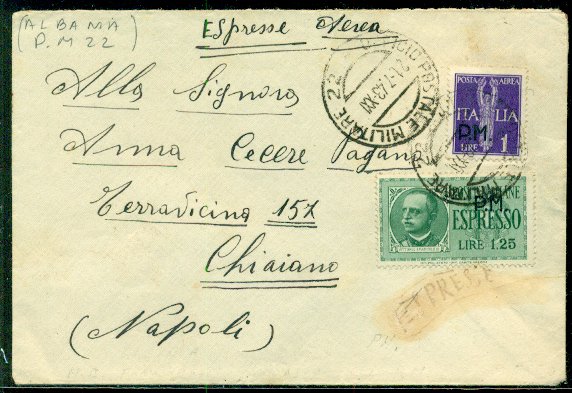 (ALBANIA
P.M 22)
Espresse Aerea
UFFICIO POSTALE MILITARE 22
21.7.43.XXI
POSTA AEREA
ITALIA
P.M.
LIRE 1
Alla Signora
Anna Cecere Pagano
Terravicina 157
Chiaiano
(Napoli)
P.M.
ESPRESSO
LIRE 1.25
EXPRESS